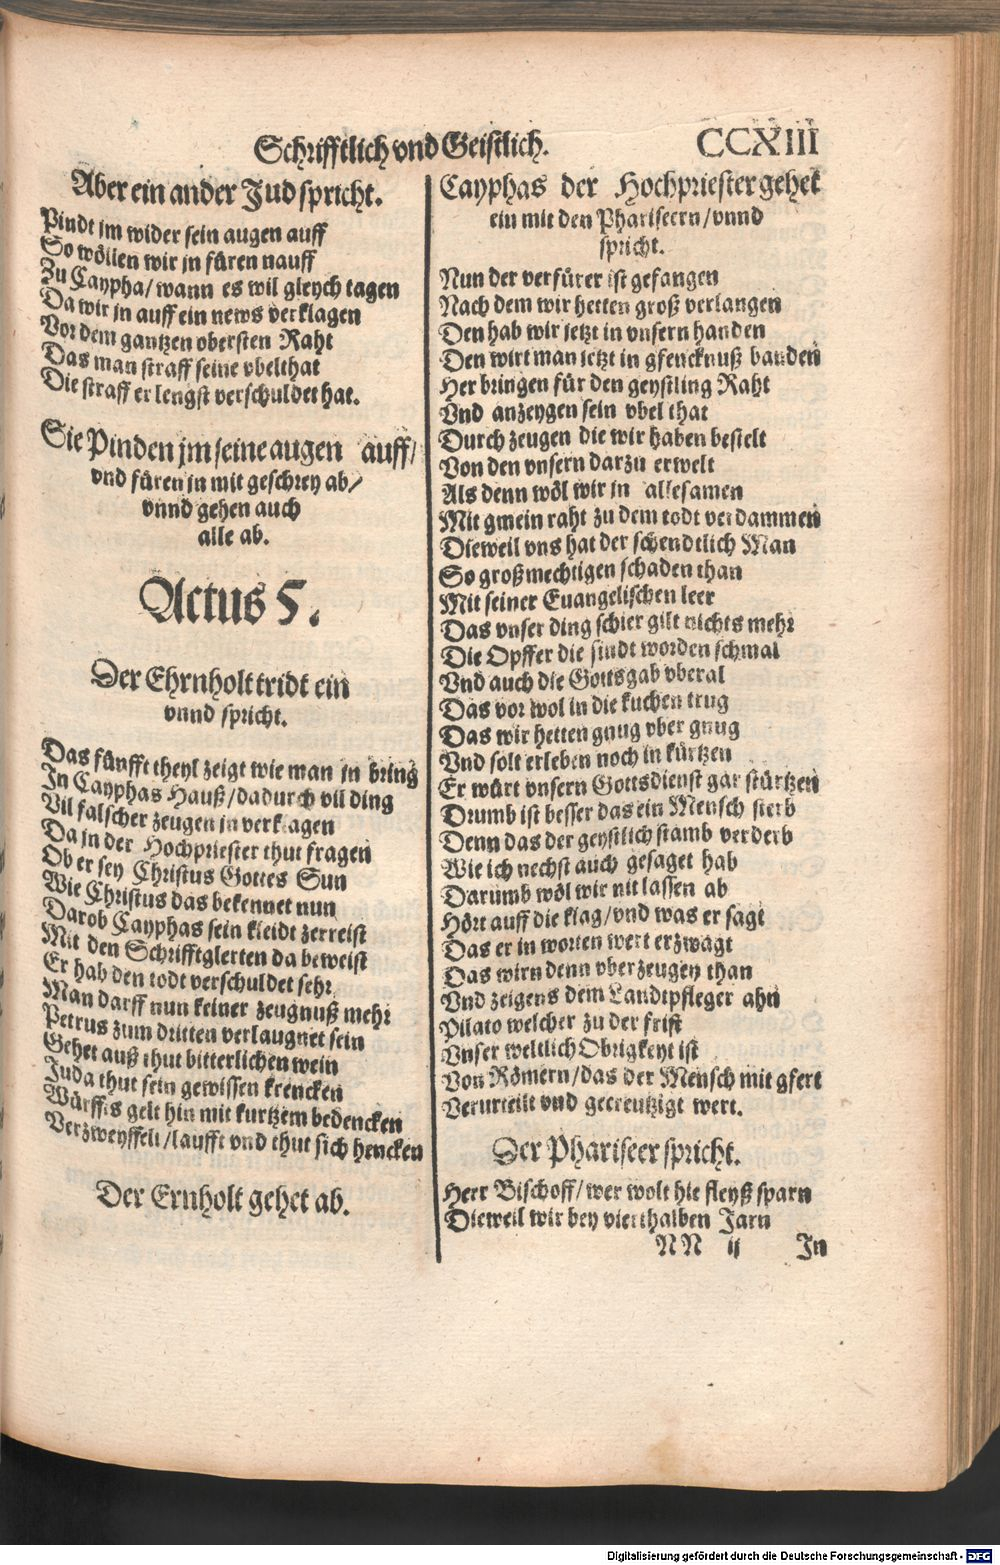 Schrifftlich vnd Geistlich.
CCXIII
Aber ein ander Jud spricht.
Pindt jm wider sein augen auff
So wöllen wir jn füren nauff
Zu Caypha/ wann es wil gleych tagen
Da wir jn auff ein news verklagen
Vor dem gantzen obersten Raht
Das man straff seine vbelthat
Die straff er lengst verschuldet hat.
Sie Pinden jm seine augen auff/
vnd füren jn mit geschrey ab/
vnnd gehen auch
alle ab.
Actus 5.
Der Ehrnholt tridt ein
vnnd spricht.
Das fünfft theyl zeigt wie man jn bring
In Cayphas Hauß/ dadurch vil ding
Vil falscher zeugen jn verklagen
Da jn der Hochpriester thut fragen
Ob er sey Christus Gottes Sun
Wie Christus das bekennet nun
Darob Cayphas sein kleidt zerreist
Mit den Schrifftglerten da beweist
Er hab den todt verschuldet sehr
Man darff nun keiner zeugnuß mehr
Petrus zum dritten verlaugnet sein
Gehet auß thut bitterlichen wein
Juda thut sein gewissen krencken
Würfft's gelt hin mit kurtzem bedencken
Verzweyffelt/ laufft vnd thut sich hencken
Der Ernholt gehet ab.
Cayphas der Hochpriester gehet
ein mit den Phariseern/ vnnd
spricht.
Nun der verfürer ist gefangen
Nach dem wir hetten groß verlangen
Den hab wir jetzt in vnsern handen
Den wirt man jetzt in gfencknuß banden
Her bringen für den geystling Raht
Vnd anzeygen sein vbel that
Durch zeugen die wir haben bestelt
Von den vnsern darzu erwelt
Als denn wöl wir jn allesamen
Mit gmein raht zu dem todt verdammen
Dieweil vns hat der schendtlich Man
So großmechtigen schaden than
Mit seiner Euangelischen leer
Das vnser ding schier gilt nichts mehr
Die Opffer die sindt worden schmal
Vnd auch die Gottsgab vberal
Das vor wol in die kuchen trug
Das wir hetten gnug vber gnug
Vnd solt er leben noch in kürtzen
Er würt vnsern Gottsdienst gar stürtzen
Drumb ist besser das ein Mensch sterb
Denn das der geystlich stamb verderb
Wie ich nechst auch gesaget hab
Darumb wöl wir nit lassen ab
Hört auff die klag/ vnd was er sagt
Das er in worten wert erzwagt
Das wirn denn vberzeugen than
Vnd zeigens dem Landtpfleger ahn
Pilato welcher zu der frist
Vnser weltlich Obrigkeyt ist
Von Römern/ das der Mensch mit gfert
Verurteilt vnd gecreutzigt wert.
Der Phariseer spricht.
Herr Bischoff/ wer wolt hie fleyß sparn
Dieweil wir bey vierthalben Jarn
NN ij
In
Digitalisierung gefördert durch die Deutsche Forschungsgemeinschaft - DFG